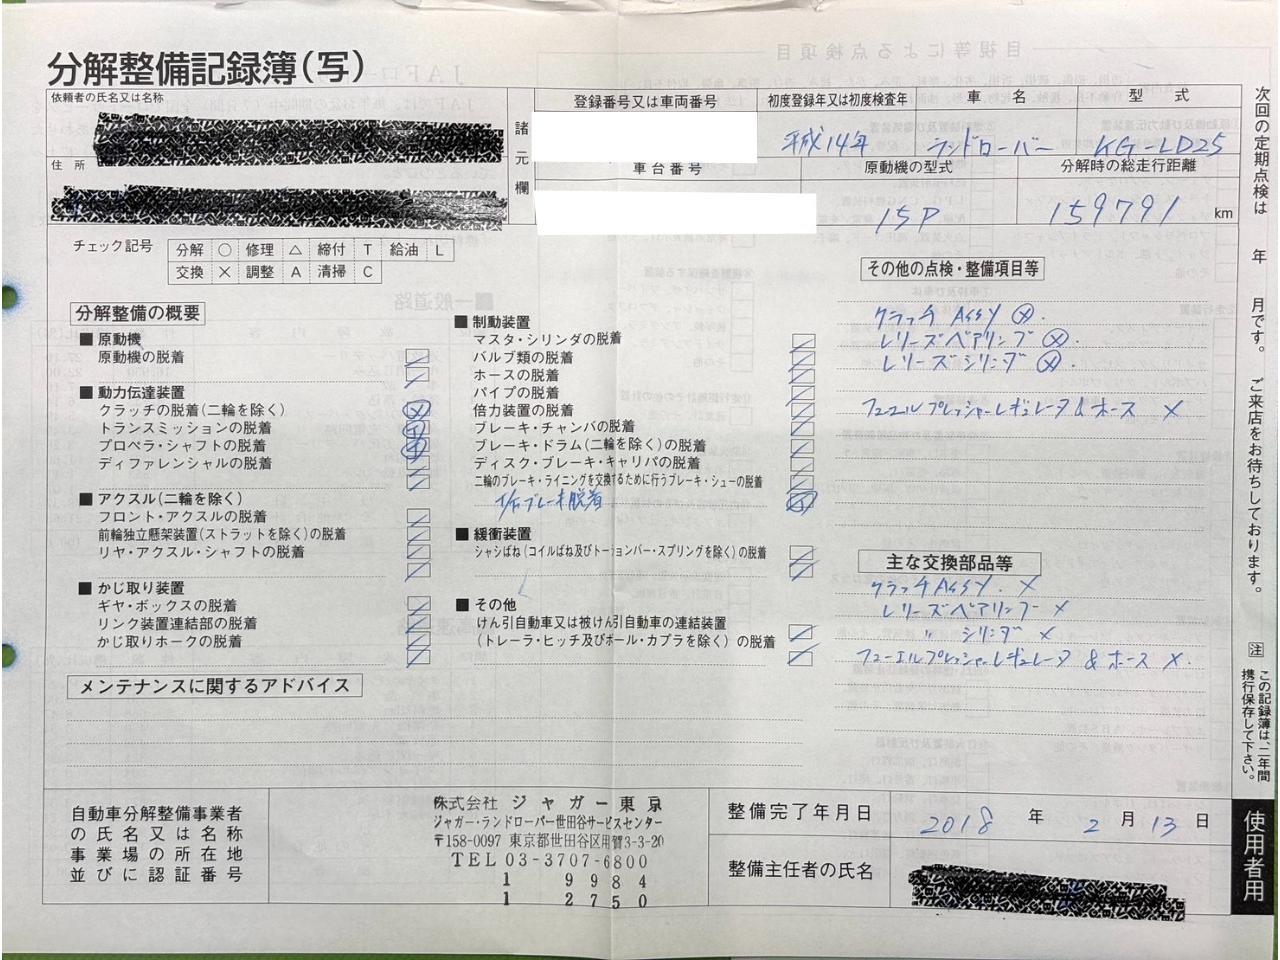 分解整備記録簿(写)
依頼者の氏名又は名称
住所
諸元欄
登録番号又は車両番号
初度登録年又は初度検査年
車名
型式
平成14年
ランドローバー
KG-LD25
車台番号
原動機の型式
分解時の総走行距離
15P
159791 km
チェック記号
分解 ○ 修理 △ 締付 T 給油 L
交換 × 調整 A 清掃 C
分解整備の概要
■ 原動機
原動機の脱着
■ 動力伝達装置
クラッチの脱着(二輪を除く)
トランスミッションの脱着
プロペラ・シャフトの脱着
ディファレンシャルの脱着
■ アクスル(二輪を除く)
フロント・アクスルの脱着
前輪独立懸架装置(ストラットを除く)の脱着
リヤ・アクスル・シャフトの脱着
■ かじ取り装置
ギヤ・ボックスの脱着
リンク装置連結部の脱着
かじ取りホークの脱着
■ 制動装置
マスタ・シリンダの脱着
バルブ類の脱着
ホースの脱着
パイプの脱着
倍力装置の脱着
ブレーキ・チャンバの脱着
ブレーキ・ドラム(二輪を除く)の脱着
ディスク・ブレーキ・キャリパの脱着
二輪のブレーキ・ライニングを交換するために行うブレーキ・シューの脱着
ブレーキ脱着
■ 緩衝装置
シャシばね(コイルばね及びトーションバー・スプリングを除く)の脱着
■ その他
けん引自動車又は被けん引自動車の連結装置
(トレーラ・ヒッチ及びボール・カプラを除く)の脱着
その他の点検・整備項目等
クラッチ ASSY ⓧ.
レリーズベアリング ⓧ.
レリーズシリンダ ⓧ.
フューエルプレッシャーレギュレータ & ホース ×
主な交換部品等
クラッチASSY. ×
レリーズベアリング ×
〃 シリンダ ×
フューエルプレッシャーレギュレータ & ホース ×.
メンテナンスに関するアドバイス
自動車分解整備事業者
の氏名又は名称
事業場の所在地
並びに認証番号
株式会社 ジャガー東京
ジャガー・ランドローバー世田谷サービスセンター
〒158-0097 東京都世田谷区用賀3-3-20
TEL 03-3707-6800
1 9984
1 2750
整備完了年月日
2018 年 2 月 13 日
整備主任者の氏名
次回の定期点検は 年 月です。ご来店をお待ちしております。
注 この記録簿は、二年間携行保存して下さい。
使用者用